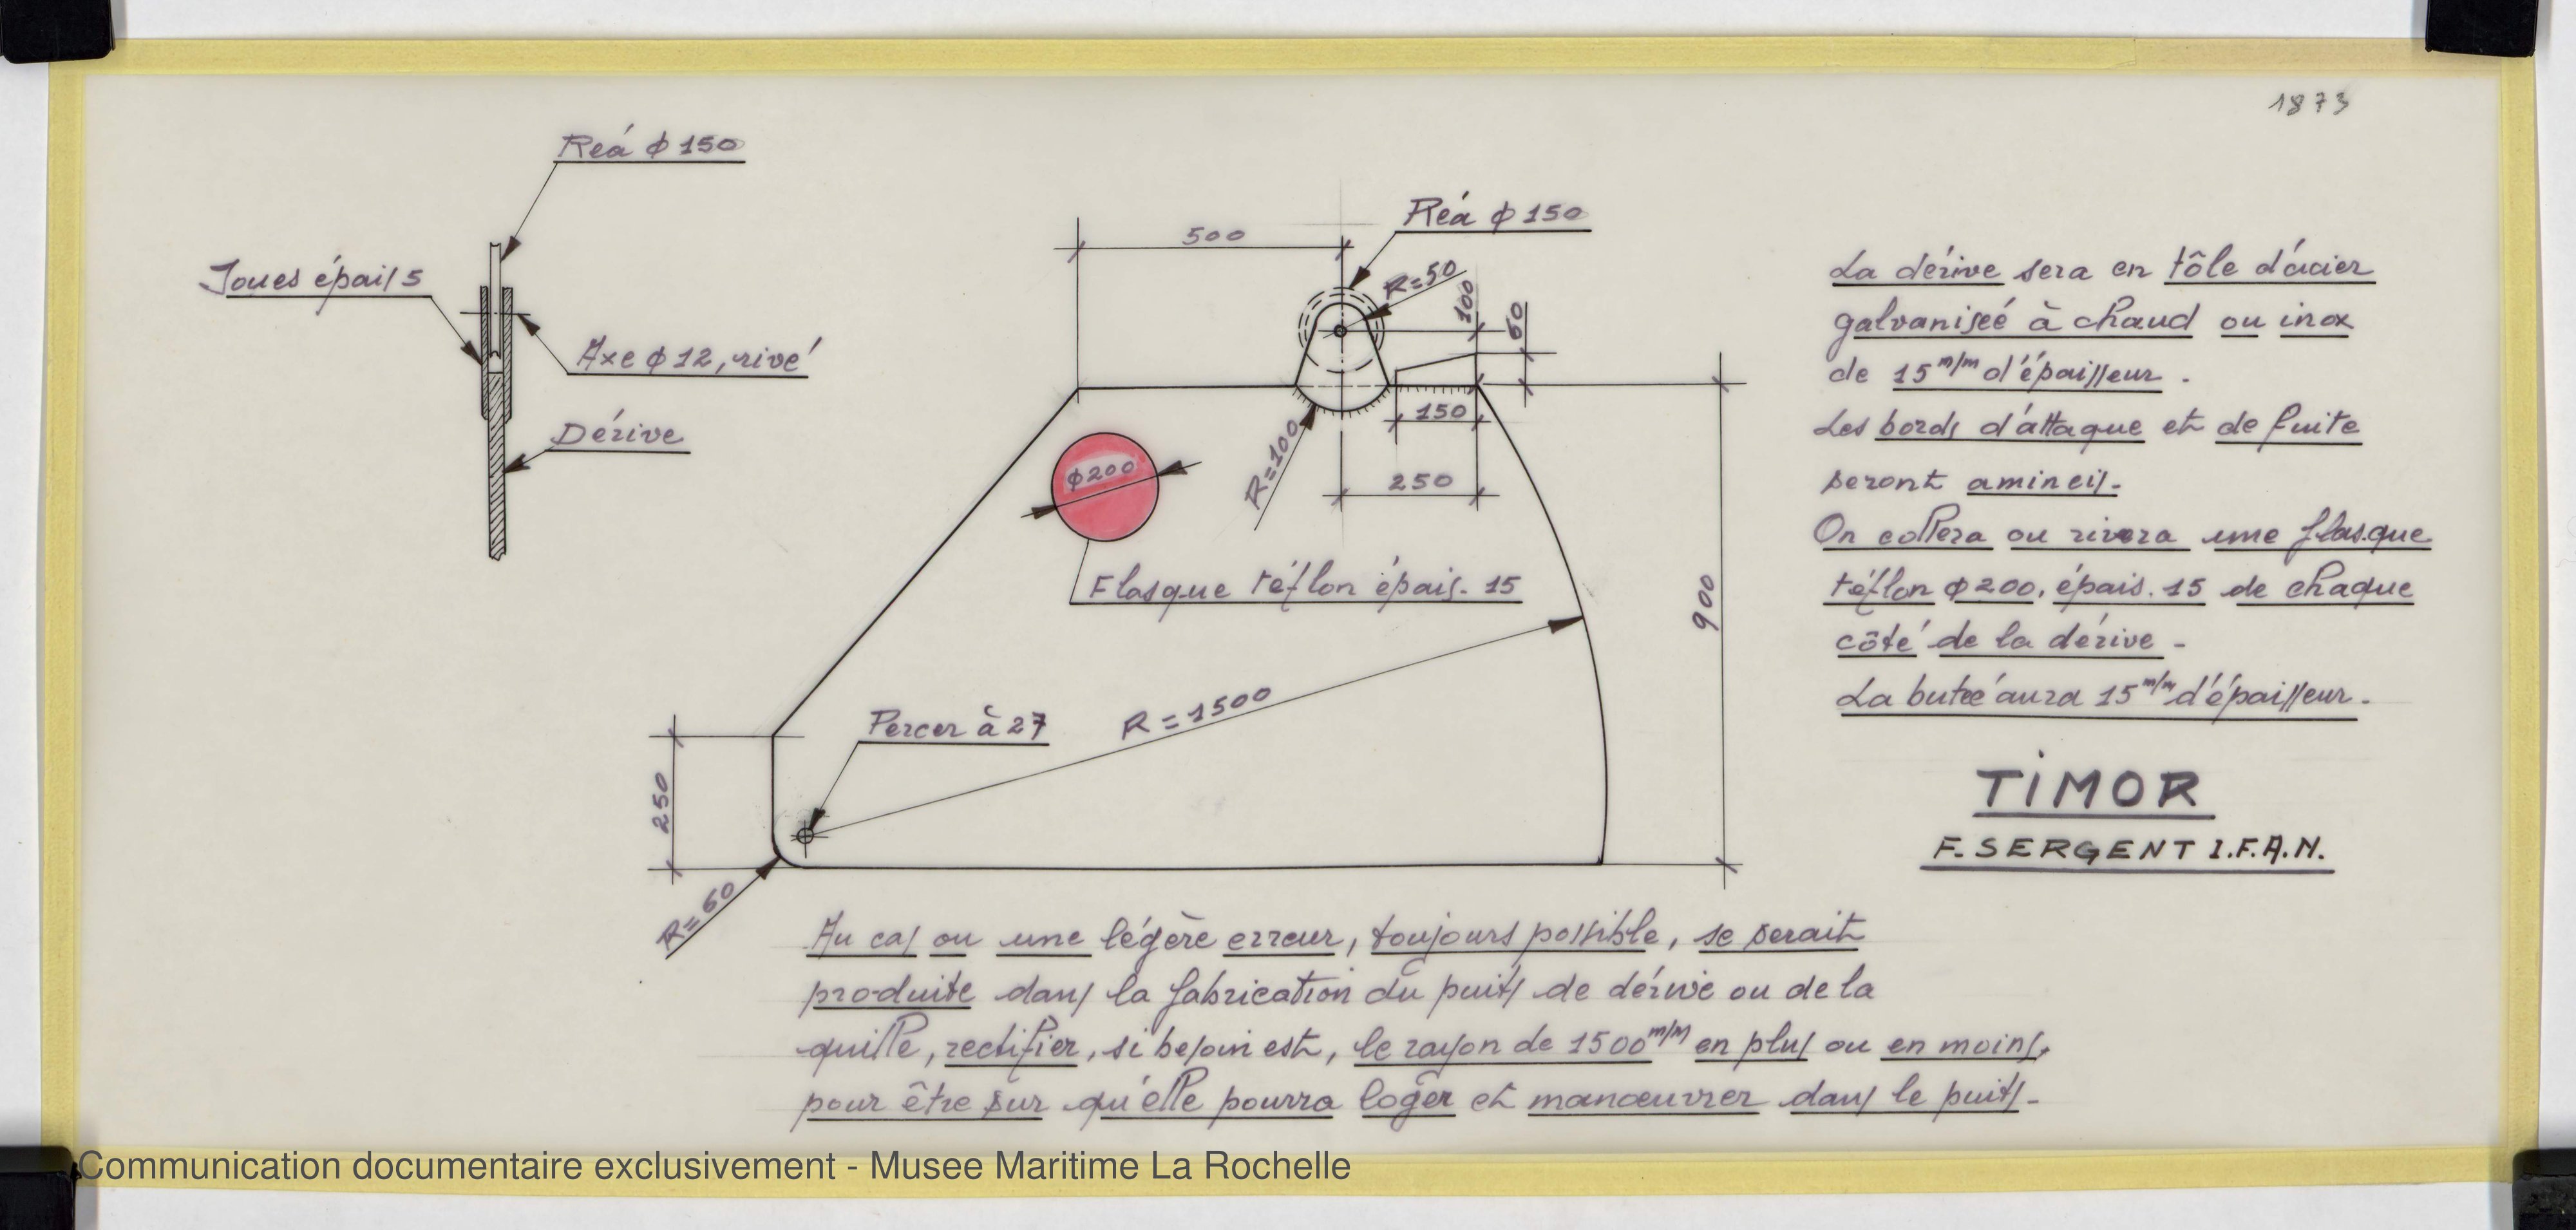 1873
Réá ϕ 150
Joues épais 5
Axe ϕ 12, rivé
Dérive
500
Réa ϕ 150
R=50
100
60
R=100
150
250
ϕ200
Flasque téflon épais. 15
900
R = 1500
Percer à 27
250
R=60
La dérive sera en tôle d'acier
galvanisée à chaud ou inox
de 15 m/m d'épaisseur.
Les bords d'attaque et de fuite
seront amincis.
On collera ou rivera une flasque
téflon ϕ 200, épais. 15 de chaque
côté de la dérive -
La butée aura 15 m/m d'épaisseur.
TIMOR
F. SERGENT I.F.A.N.
Au cas ou une légère erreur, toujours possible, se serait
produite dans la fabrication du puits de dérive ou de la
quille, rectifier, si besoin est, le rayon de 1500 m/m en plus ou en moins,
pour être sur qu'elle pourra loger et manœuvrer dans le puits-
Communication documentaire exclusivement - Musee Maritime La Rochelle